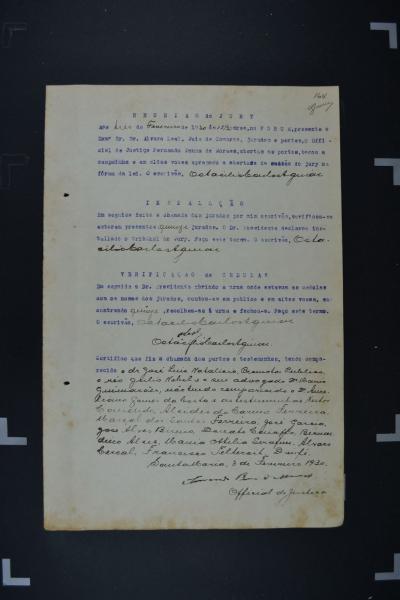 164
REUNIÃO do JURY
Aos tres de Fevereiro de 1930 ás 12 horas, no FORUM, presente o
Exmº Sr. Dr. Alvaro Leal, Juiz de Comarca, jurados e partes, o Offi-
cial de Justiça Fernando Penna de Moraes, abertas as portas, tocou a
campainha e em altas vozes apregoou a abertura da sessão do jury na
fórma da lei. O escrivão, Octacilio Carlos Aguiar
INSTALLAÇÃO
Em seguida feita a chamada dos jurados por mim escrivão, verificou-se
estarem presentes quinze jurados. O Dr. Presidente declarou ins-
tallado o Tribunal do Jury. Faço este termo. O escrivão, Octa-
cilio Carlos Aguiar
VERIFICAÇÃO de CEDULAS
Em seguida o Dr. Presidente abrindo a urna onde estavam as cedulas
com os nomes dos jurados, contou-as em publico e em altas vozes, en-
contrando quinze, recolheu-as á urna e fechou-a. Faço este termo.
O escrivão, Octacilio Carlos Aguiar
Octacilio Carlos Aguiar
Certifico que fiz a chamada das partes e testemunhas, tendo compa-
recido o dr José Luiz Natalicio, Promotor Publico,
o réo Julio Nobels e seu advogado Dr Mario
Guimarães, não tendo comparecido o
Gomes da Costa e as testemunhas
Alcides do Carmo Ferreira,
Marçal dos Santos Ferreira, José Garcia,
José Alves Bruno, Donato, Bernar
dino Alves, Maria Ottilia Serafim, Alvaro
Marçal, Francisco. Dou fé.
Santa Maria, 3 de Fevereiro 1930.
Official de Justiça